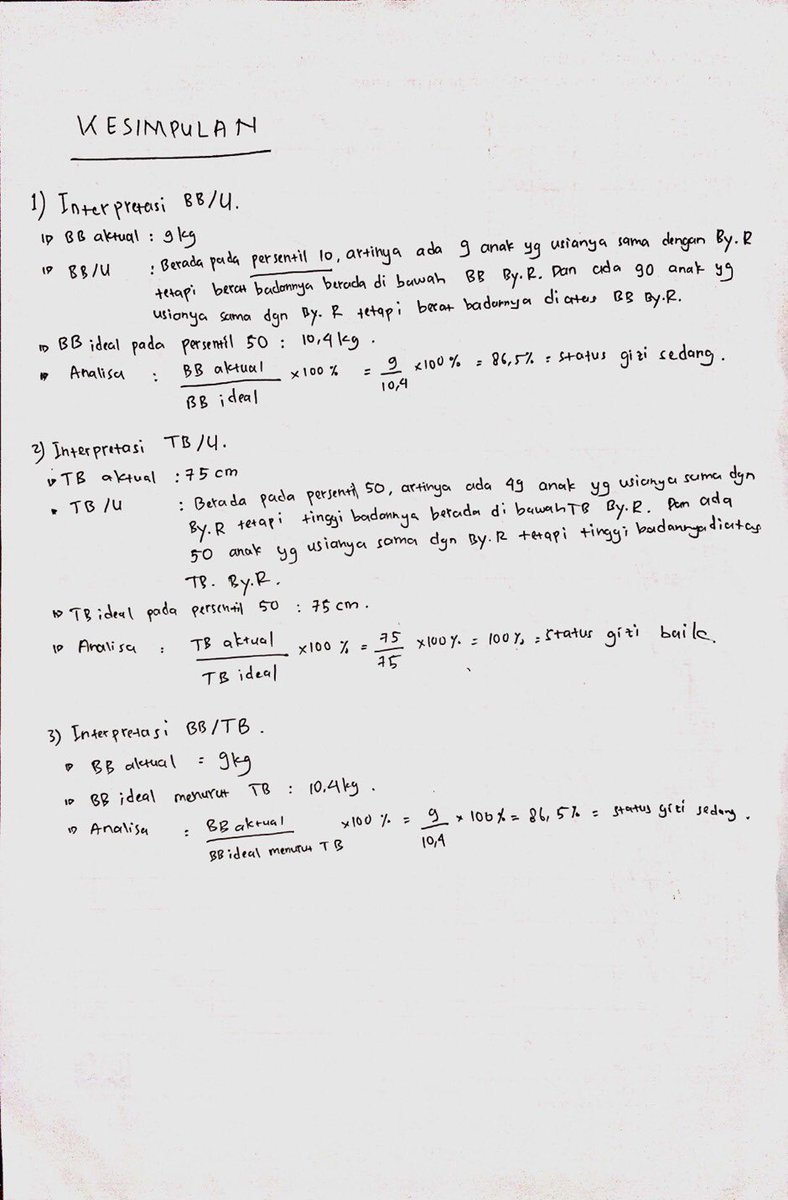 KESIMPULAN
1) Interpretasi BB/U.
BB aktual : 9 kg
BB/U : Berada pada persentil 10, artinya ada 9 anak yg usianya sama dengan By.R
tetapi berat badannya berada di bawah BB By.R. Dan ada 90 anak yg
usianya sama dgn By.R tetapi berat badannya diatas BB By.R.
BB ideal pada persentil 50 : 10,4 kg.
Analisa : BB aktual / BB ideal × 100 % = 9 / 10,4 × 100 % = 86,5% = status gizi sedang.
2) Interpretasi TB/U.
TB aktual : 75 cm
TB/U : Berada pada persentil 50, artinya ada 49 anak yg usianya sama dgn
By.R tetapi tinggi badannya berada di bawah TB By.R. Dan ada
50 anak yg usianya sama dgn By.R tetapi tinggi badannya diatas
TB. By.R.
TB ideal pada persentil 50 : 75 cm.
Analisa : TB aktual / TB ideal × 100 % = 75 / 75 × 100 % = 100 % = status gizi baik.
3) Interpretasi BB/TB.
BB aktual = 9 kg
BB ideal menurut TB : 10,4 kg.
Analisa : BB aktual / BB ideal menurut TB × 100 % = 9 / 10,4 × 100 % = 86,5% = status gizi sedang.